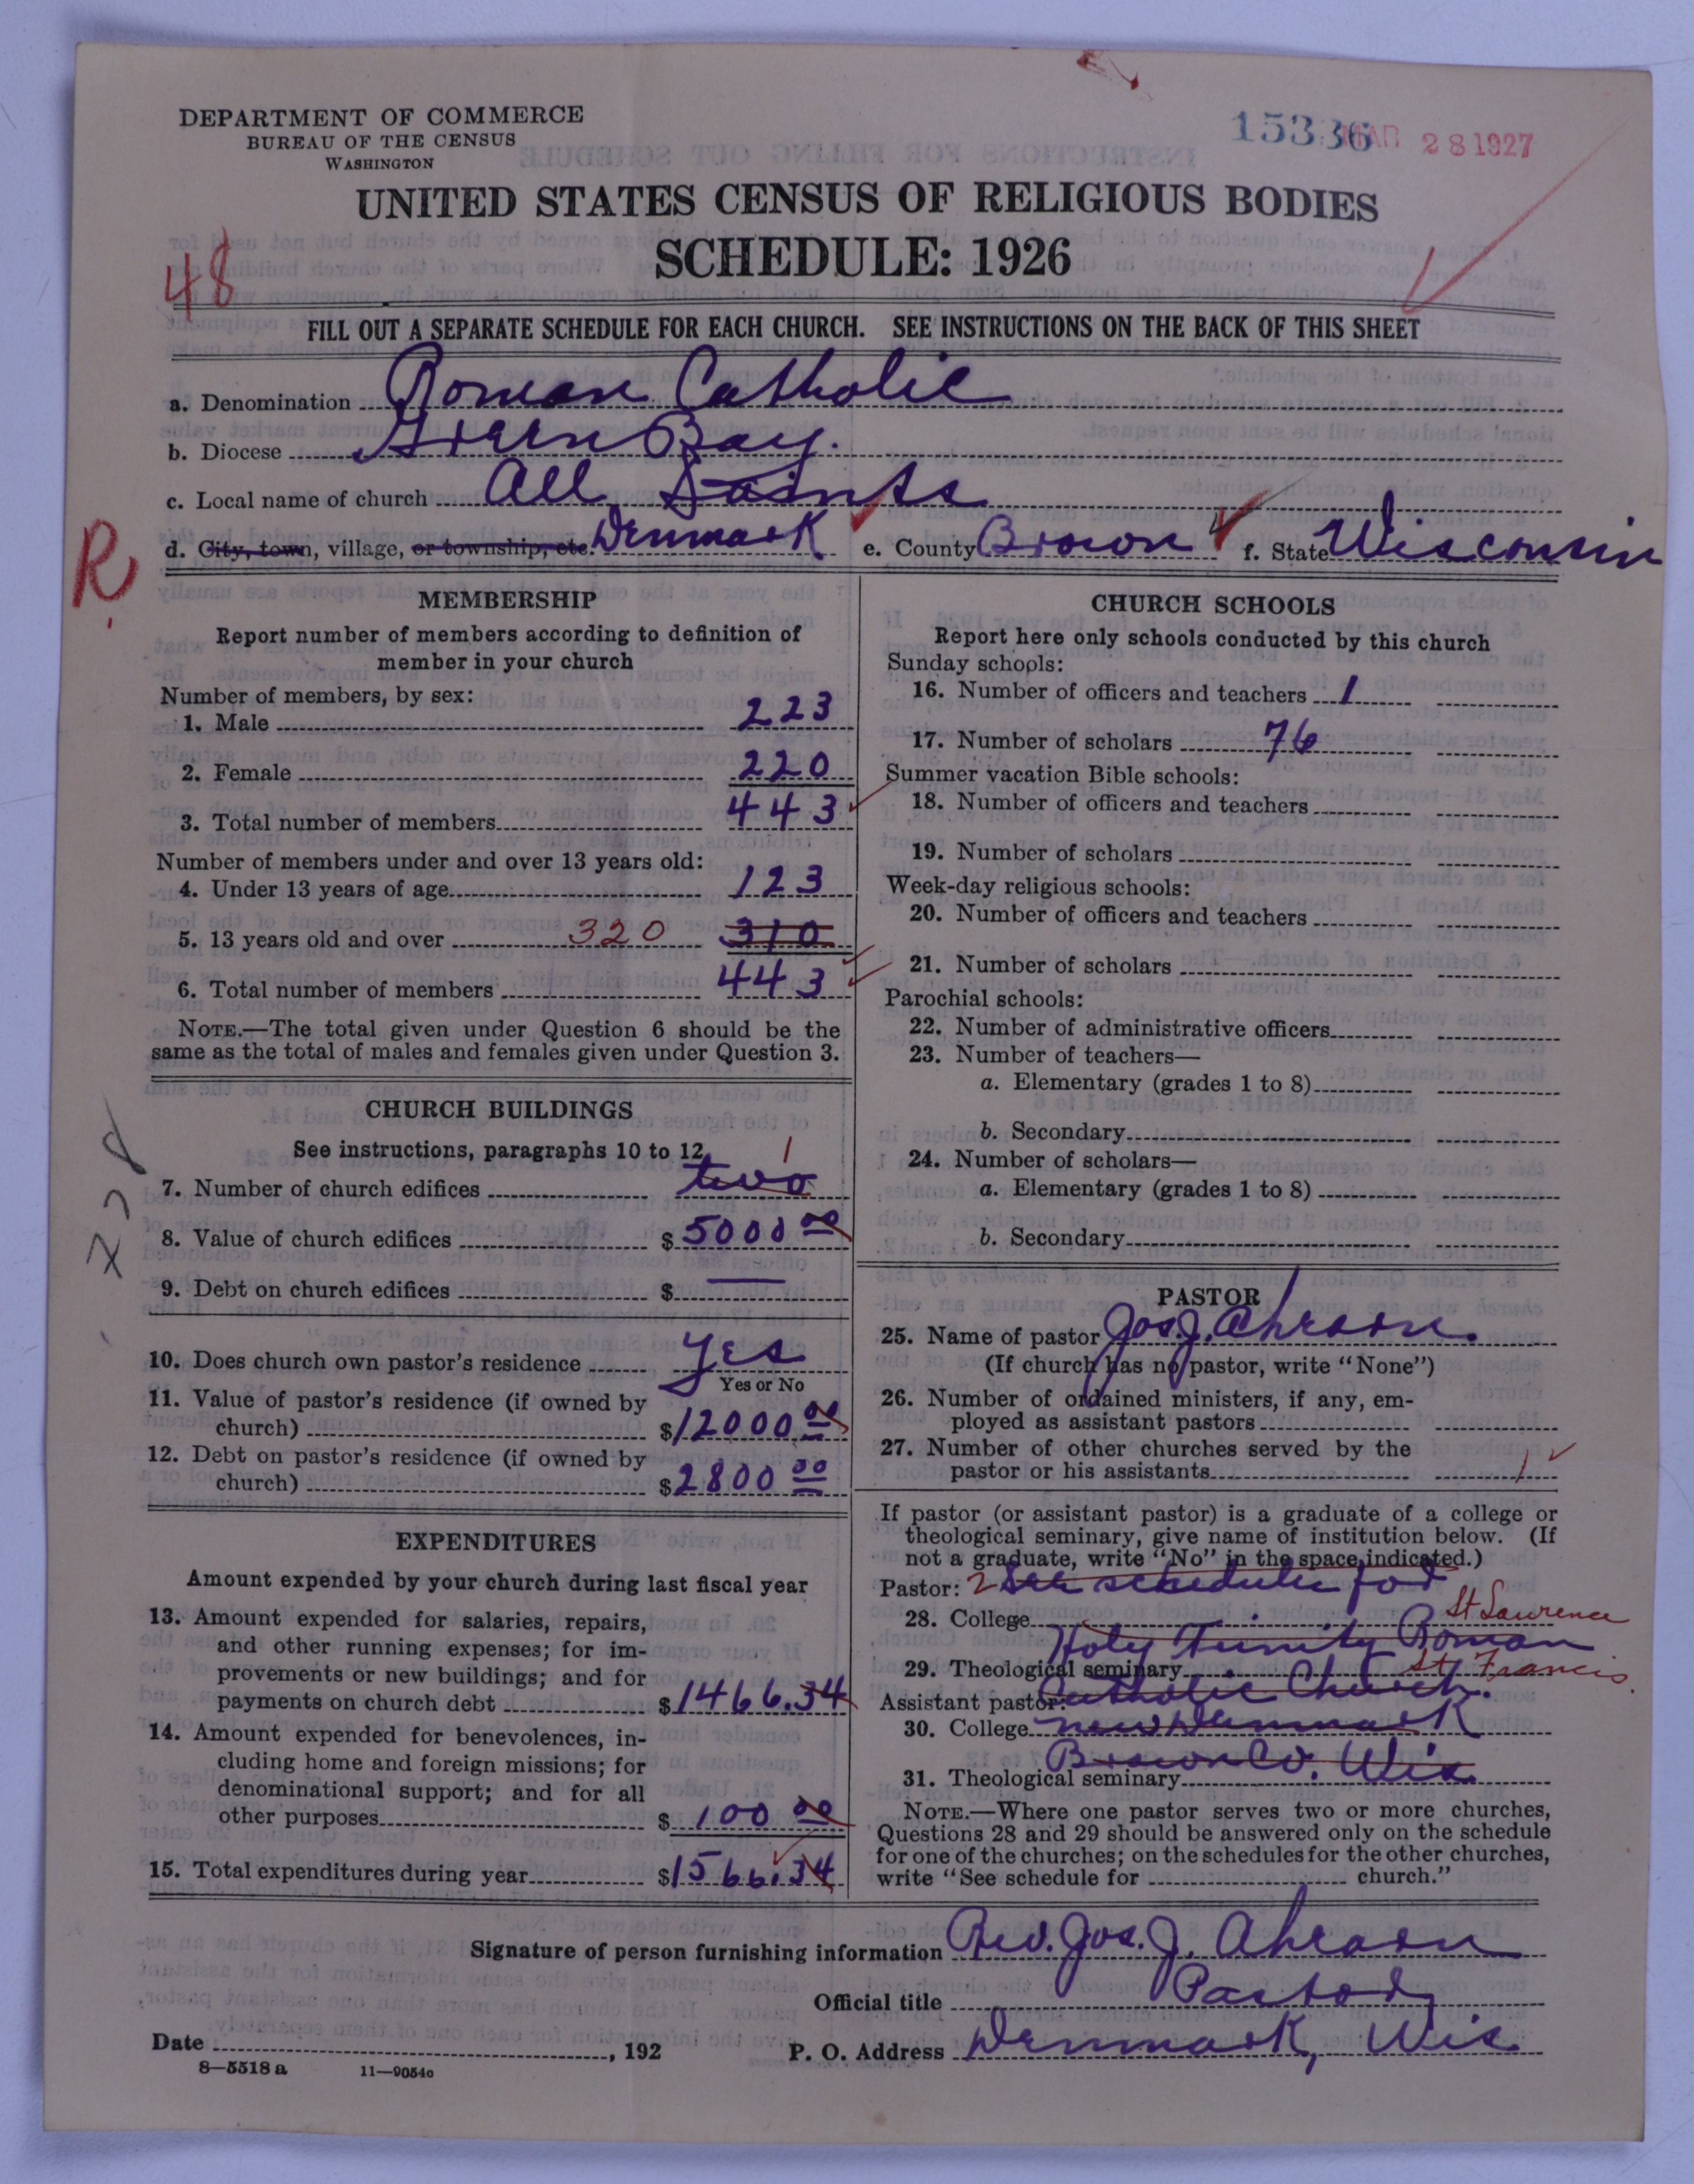 DEPARTMENT OF COMMERCE
BUREAU OF THE CENSUS
WASHINGTON
15336 MAR 28 1927
UNITED STATES CENSUS OF RELIGIOUS BODIES
SCHEDULE: 1926
48
FILL OUT A SEPARATE SCHEDULE FOR EACH CHURCH. SEE INSTRUCTIONS ON THE BACK OF THIS SHEET
a. Denomination Roman Catholic
b. Diocese Green Bay.
c. Local name of church All Saints
d. City, town, village, or township, etc. Denmark e. County Brown f. State Wisconsin
R
MEMBERSHIP
Report number of members according to definition of
member in your church
Number of members, by sex:
1. Male 223
2. Female 220
3. Total number of members 443
Number of members under and over 13 years old:
4. Under 13 years of age 123
5. 13 years old and over 320 310
6. Total number of members 443
NOTE.—The total given under Question 6 should be the
same as the total of males and females given under Question 3.
CHURCH BUILDINGS
See instructions, paragraphs 10 to 12
7. Number of church edifices two 1
8. Value of church edifices $ 5000 00
9. Debt on church edifices $ —
10. Does church own pastor's residence Yes
Yes or No
11. Value of pastor's residence (if owned by
church) $ 12000 00
12. Debt on pastor's residence (if owned by
church) $ 2800 00
EXPENDITURES
Amount expended by your church during last fiscal year
13. Amount expended for salaries, repairs,
and other running expenses; for im-
provements or new buildings; and for
payments on church debt $ 1466.34
14. Amount expended for benevolences, in-
cluding home and foreign missions; for
denominational support; and for all
other purposes $ 100 00
15. Total expenditures during year $ 1566.34
CHURCH SCHOOLS
Report here only schools conducted by this church
Sunday schools:
16. Number of officers and teachers 1
17. Number of scholars 76
Summer vacation Bible schools:
18. Number of officers and teachers
19. Number of scholars
Week-day religious schools:
20. Number of officers and teachers
21. Number of scholars
Parochial schools:
22. Number of administrative officers
23. Number of teachers—
a. Elementary (grades 1 to 8)
b. Secondary
24. Number of scholars—
a. Elementary (grades 1 to 8)
b. Secondary
PASTOR
25. Name of pastor Jos. J. Ahearn.
(If church has no pastor, write "None")
26. Number of ordained ministers, if any, em-
ployed as assistant pastors
27. Number of other churches served by the
pastor or his assistants 1
If pastor (or assistant pastor) is a graduate of a college or
theological seminary, give name of institution below. (If
not a graduate, write "No" in the space indicated.)
Pastor: 2 See schedule for
28. College St Lawrence
Holy Trinity Roman
29. Theological seminary St. Francis.
Assistant pastor: Catholic Church.
30. College New Denmark
Brown Co. Wis.
31. Theological seminary
NOTE.—Where one pastor serves two or more churches,
Questions 28 and 29 should be answered only on the schedule
for one of the churches; on the schedules for the other churches,
write "See schedule for church."
Signature of person furnishing information Rev. Jos. J. Ahearn
Official title Pastor
Date , 192
P. O. Address Denmark, Wis
8—5518 a 11—9054c